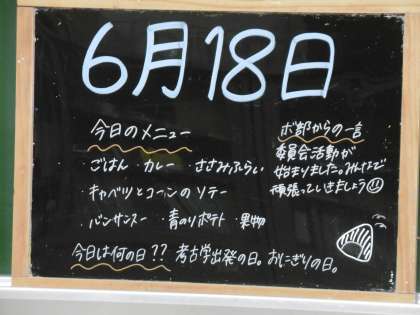 6月18日
今日のメニュー
・ごはん・カレー・ささみふらい
・キャベツとコーンのソテー
・バンサンスー・青のりポテト・果物
ボ部からの一言
委員会活動が
始まりました。みんなで
頑張っていきましょう
今日は何の日?? 考古学出発の日。おにぎりの日。